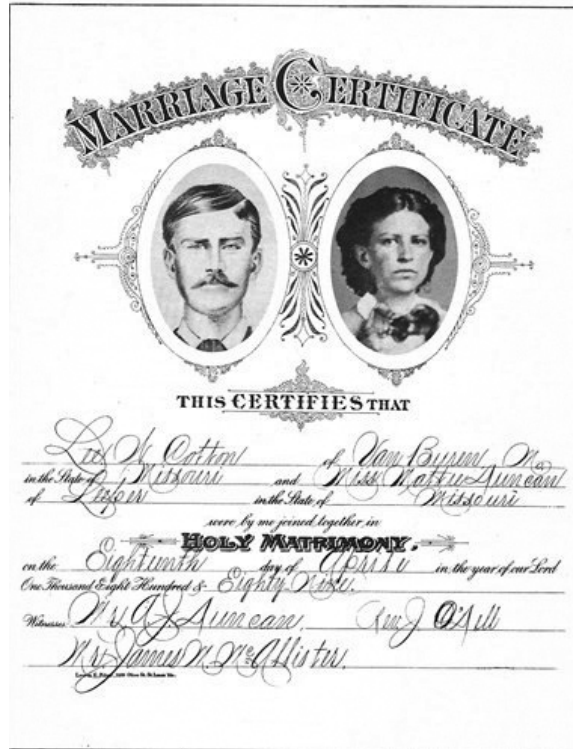 MARRIAGE CERTIFICATE
THIS CERTIFIES THAT
Lee Cotton of Van Buren Mo
in the State of Missouri and Miss Mattie Duncan
of Leeper in the State of Missouri
were by me joined together in
HOLY MATRIMONY.
on the Eighteenth day of April in the year of our Lord
One Thousand Eight Hundred & Eighty Nine.
Witnesses Mrs A. J. Duncan, Rev J.
Mr James McAllister.